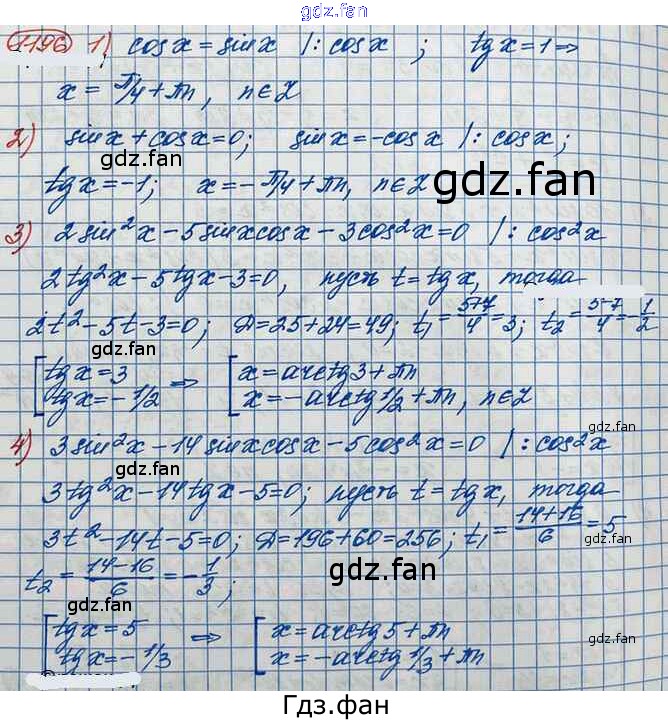 gdz.fan
1196 1) cosx = sinx |: cosx ; tgx = 1 ⇒
gdz.fan
x = π/4 + πn, n∈Z
2) sinx + cosx = 0; sinx = -cosx |: cosx;
gdz.fan
tgx = -1; x = -π/4 + πn, n∈Z
gdz.fan
3) 2sin²x - 5sinxcosx - 3cos²x = 0 |: cos²x
2tg²x - 5tgx - 3 = 0, пусть t = tgx, тогда
2t² - 5t - 3 = 0; D = 25 + 24 = 49; t₁ = (5+7)/4 = 3; t₂ = (5-7)/4 = -1/2
gdz.fan
[tgx = 3 ⇒ [x = arctg3 + πn
[tgx = -1/2 [x = -arctg1/2 + πn, n∈Z
gdz.fan
4) 3sin²x - 14sinxcosx - 5cos²x = 0 |: cos²x
3tg²x - 14tgx - 5 = 0; пусть t = tgx, тогда
3t² - 14t - 5 = 0; D = 196 + 60 = 256; t₁ = (14+16)/6 = 5
gdz.fan
t₂ = (14-16)/6 = -1/3;
gdz.fan
gdz.fan
[tgx = 5 ⇒ [x = arctg5 + πn
gdz.fan
[tgx = -1/3 [x = -arctg1/3 + πn
Гдз.фан